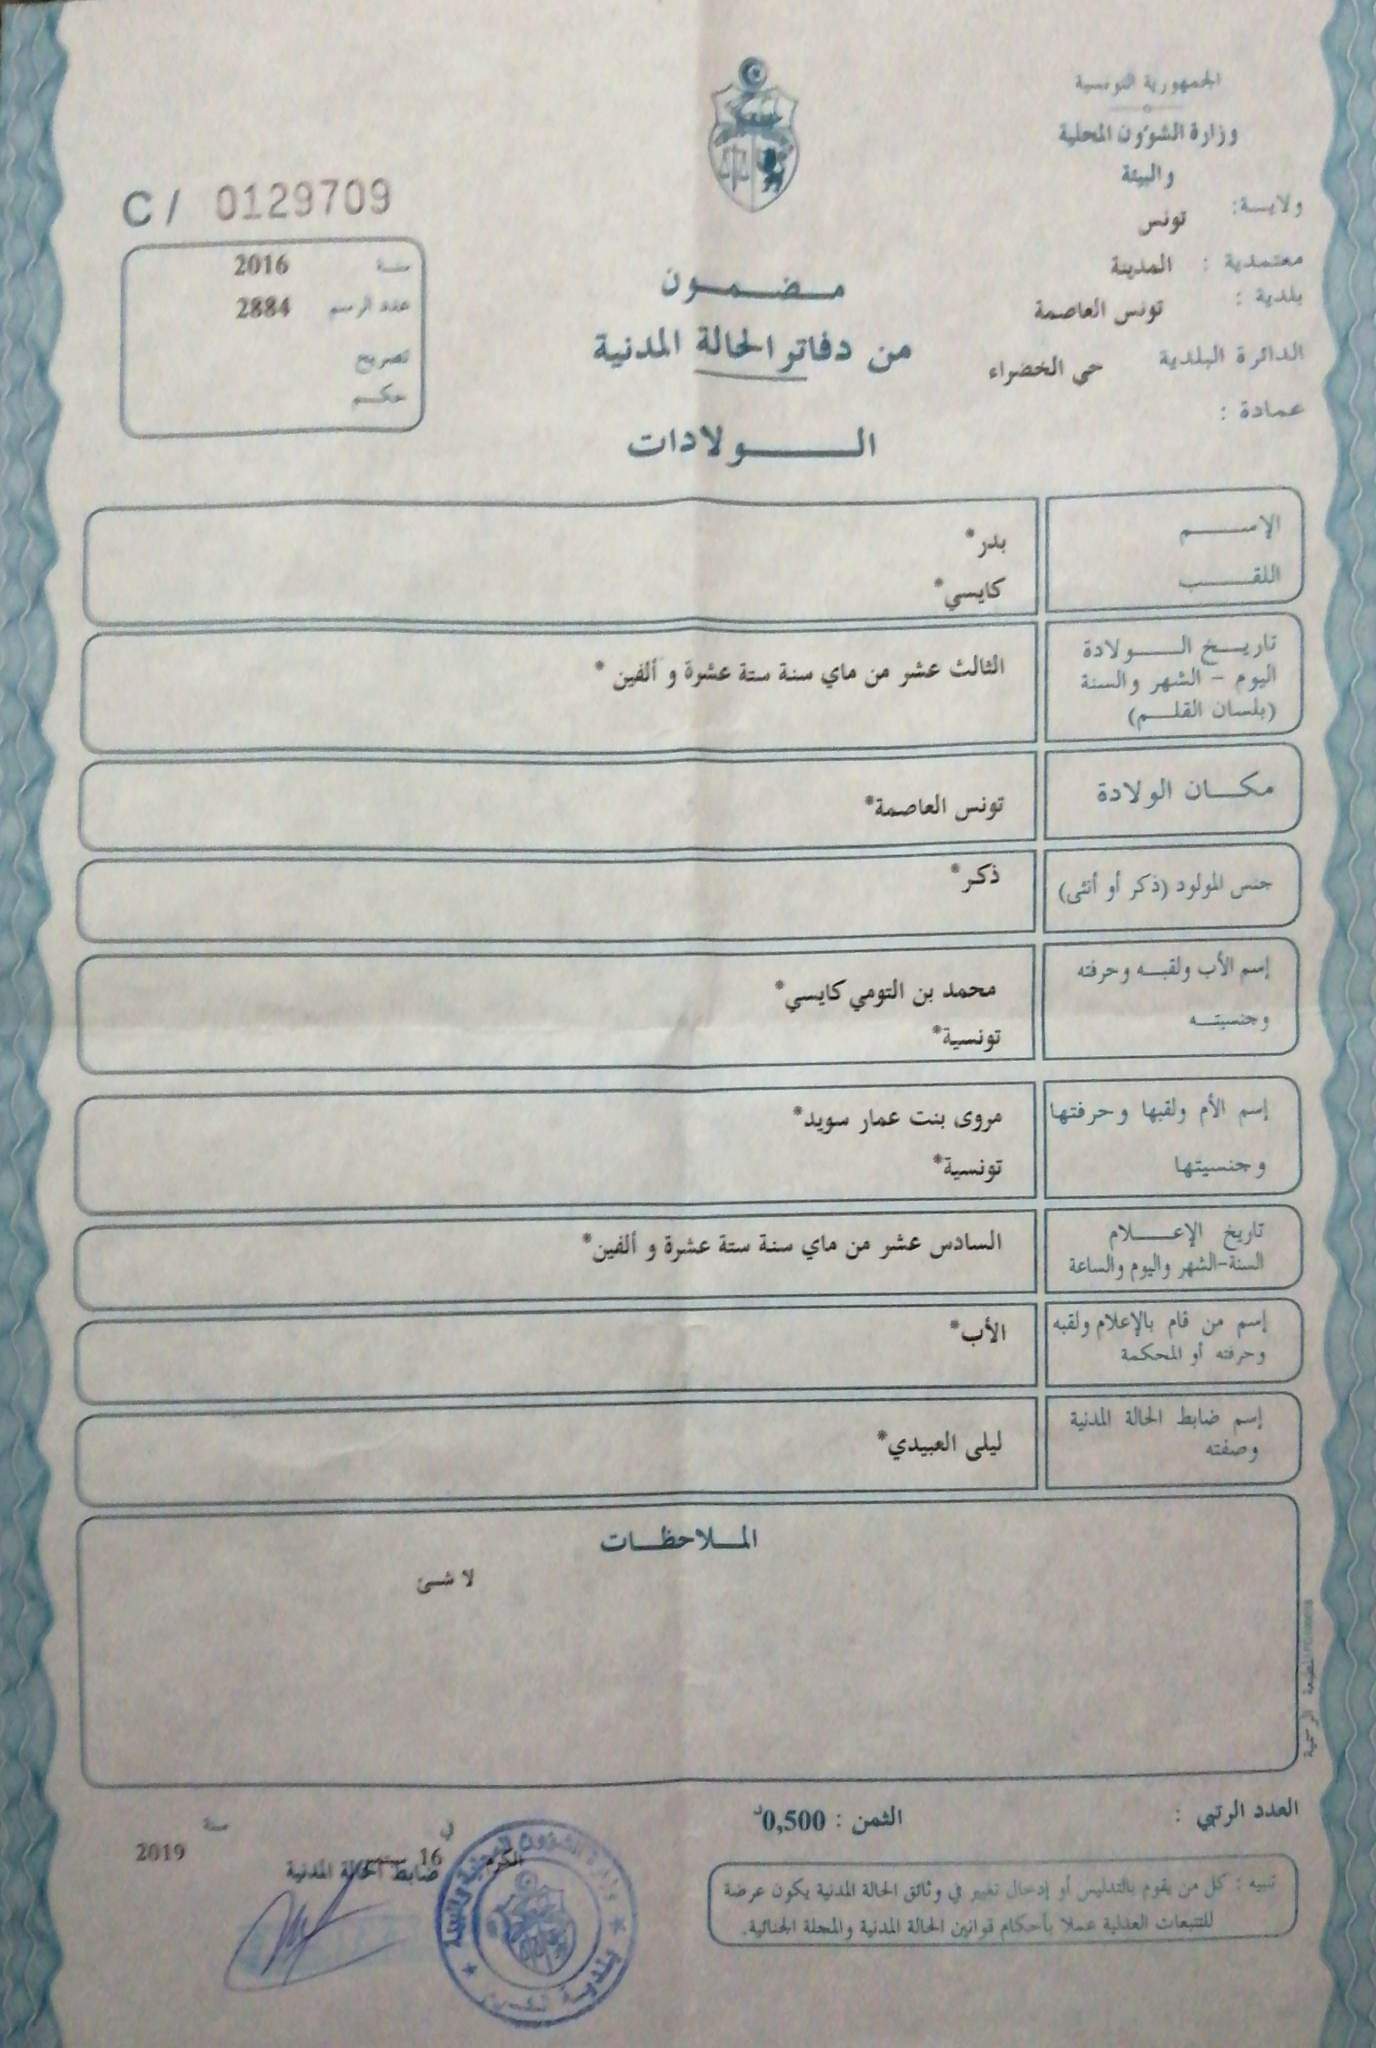 الجمهورية التونسية
وزارة الشؤون المحلية
والبيئة
ولايــة: تونس
معتمدية : المدينة
بلدية : تونس العاصمة
الدائرة البلدية حي الخضراء
عمادة :
C / 0129709
سنة 2016
عدد الرسم 2884
تصريح
حكم
مضمون
من دفاتر الحالة المدنية
الولادات
الإسم بدر*
اللقب كايسي*
تاريخ الولادة
اليوم - الشهر والسنة
(بلسان القلم)
الثالث عشر من ماي سنة ستة عشرة و ألفين *
مكان الولادة تونس العاصمة*
جنس المولود (ذكر أو أنثى) ذكر*
إسم الأب ولقبه وحرفته
وجنسيته
محمد بن التومي كايسي*
تونسية*
إسم الأم ولقبها وحرفتها
وجنسيتها
مروى بنت عمار سويد*
تونسية*
تاريخ الإعلام
السنة-الشهر واليوم والساعة
السادس عشر من ماي سنة ستة عشرة و ألفين*
إسم من قام بالإعلام ولقبه
وحرفته أو المحكمة
الأب*
إسم ضابط الحالة المدنية
وصفته
ليلى العبيدي*
الملاحظات
لا شئ
المطبعة الرسمية
العدد الرتبي :
الثمن : 0,500د
تنبيه : كل من يقوم بالتدليس أو إدخال تغيير في وثائق الحالة المدنية يكون عرضة
للتتبعات العدلية عملا بأحكام قوانين الحالة المدنية والمجلة الجنائية.
الكرم في 16 سبتمبر سنة 2019
ضابط الحالة المدنية
وزارة الشؤون المحلية والبيئة
بلدية الكرم